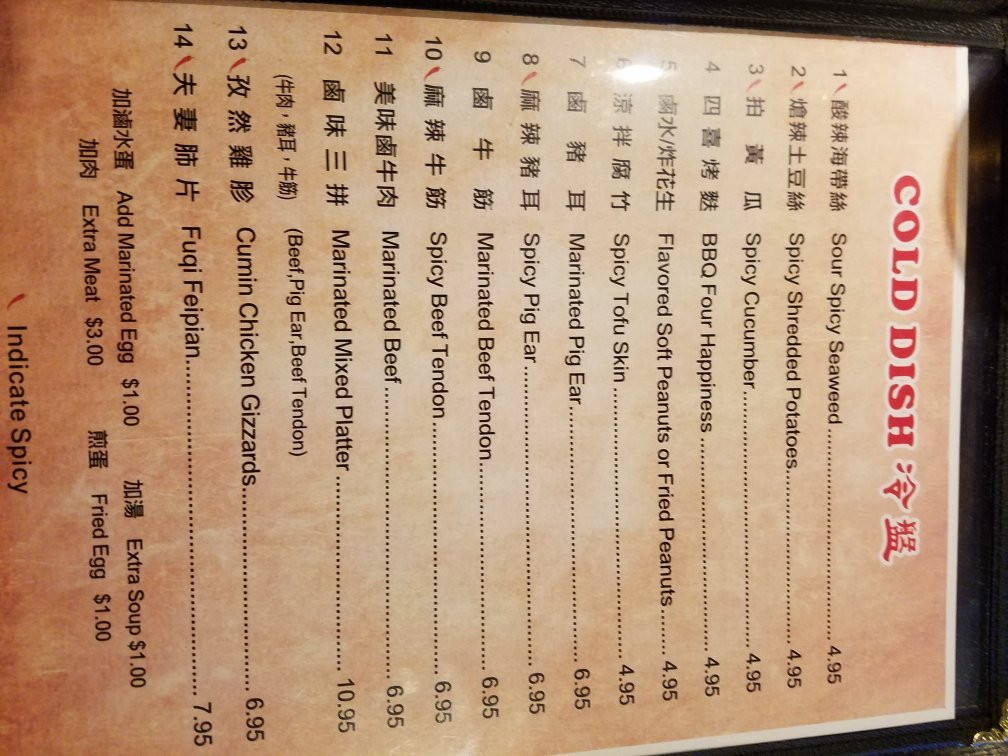 COLD DISH 冷盤
1 酸辣海帶絲 Sour Spicy Seaweed 4.95
2 熗辣土豆絲 Spicy Shredded Potatoes 4.95
3 拍黃瓜 Spicy Cucumber 4.95
4 四喜烤麩 BBQ Four Happiness 4.95
5 鹵水/炸花生 Flavored Soft Peanuts or Fried Peanuts 4.95
6 涼拌腐竹 Spicy Tofu Skin 4.95
7 鹵豬耳 Marinated Pig Ear 6.95
8 麻辣豬耳 Spicy Pig Ear 6.95
9 鹵牛筋 Marinated Beef Tendon 6.95
10 麻辣牛筋 Spicy Beef Tendon 6.95
11 美味鹵牛肉 Marinated Beef 6.95
12 鹵味三拼 Marinated Mixed Platter 10.95
(牛肉，豬耳，牛筋) (Beef,Pig Ear,Beef Tendon)
13 孜然雞胗 Cumin Chicken Gizzards 6.95
14 夫妻肺片 Fuqi Feipian 7.95
加滷水蛋 Add Marinated Egg $1.00 加湯 Extra Soup $1.00
加肉 Extra Meat $3.00 煎蛋 Fried Egg $1.00
Indicate Spicy